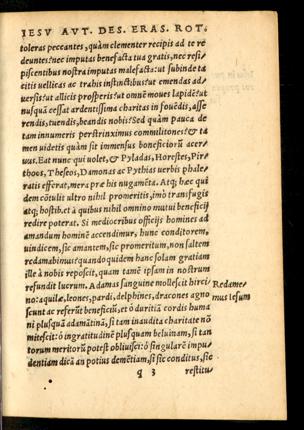 IESV AVT. DES. ERAS. ROT.
toleras peccantes, quàm clementer recipis ad te re⸗
deuntes: nec imputas benefacta tua gratis, nec resi⸗
piscentibus nostra imputas malefacta: ut subinde ta
citis uellicas ac trahis instinctibus: ut emendas ad⸗
uersis: ut allicis prosperis: ut omnē moues lapidē: ut
nusquā cessat ardentissima charitas in fouēdis, asse
rendis, tuendis, beandis nobis? Sed quàm pauca de
tam innumeris perstrinximus commilitones: & ta
men uidetis quàm sit immensus beneficiorū acer⸗
uus. Eat nunc qui uolet, & Pyladas, Horestes, Piri
thoos, Theseos, Damonas ac Pythias uerbis phale⸗
ratis efferat, mera præ his nugamēta. Atq; hæc qui
dem cōtulit ultro nihil promeritis, imò transfugis
atq; hostib. et à quibus nihil omnino mutui beneficij
redire poterat. Si mediocribus officijs homines ad
amandum hominē accendimur, hunc conditorem,
uindicem, sic amantem, sic promeritum, non saltem
redamabimus? quandoquidem hanc solam gratiam
ille à nobis reposcit, quam tamē ipsam in nostrum
refundit lucrum. Adamas sanguine mollescit hirci⸗
no: aquilæ, leones, pardi, delphines, dracones agno
scunt ac referūt beneficiū, et ô duritiā cordis huma
ni plusquā adamātinā, si tam inaudita charitate nō
mitescit: ô ingratitudinē plusquam beluinam, si tan
torum meritorū potest obliuisci: ô singularē impu⸗
dentiam dicā an potius demētiam, si sic conditus, sic
Redame⸗
mus Iesum
q 3 restitu⸗